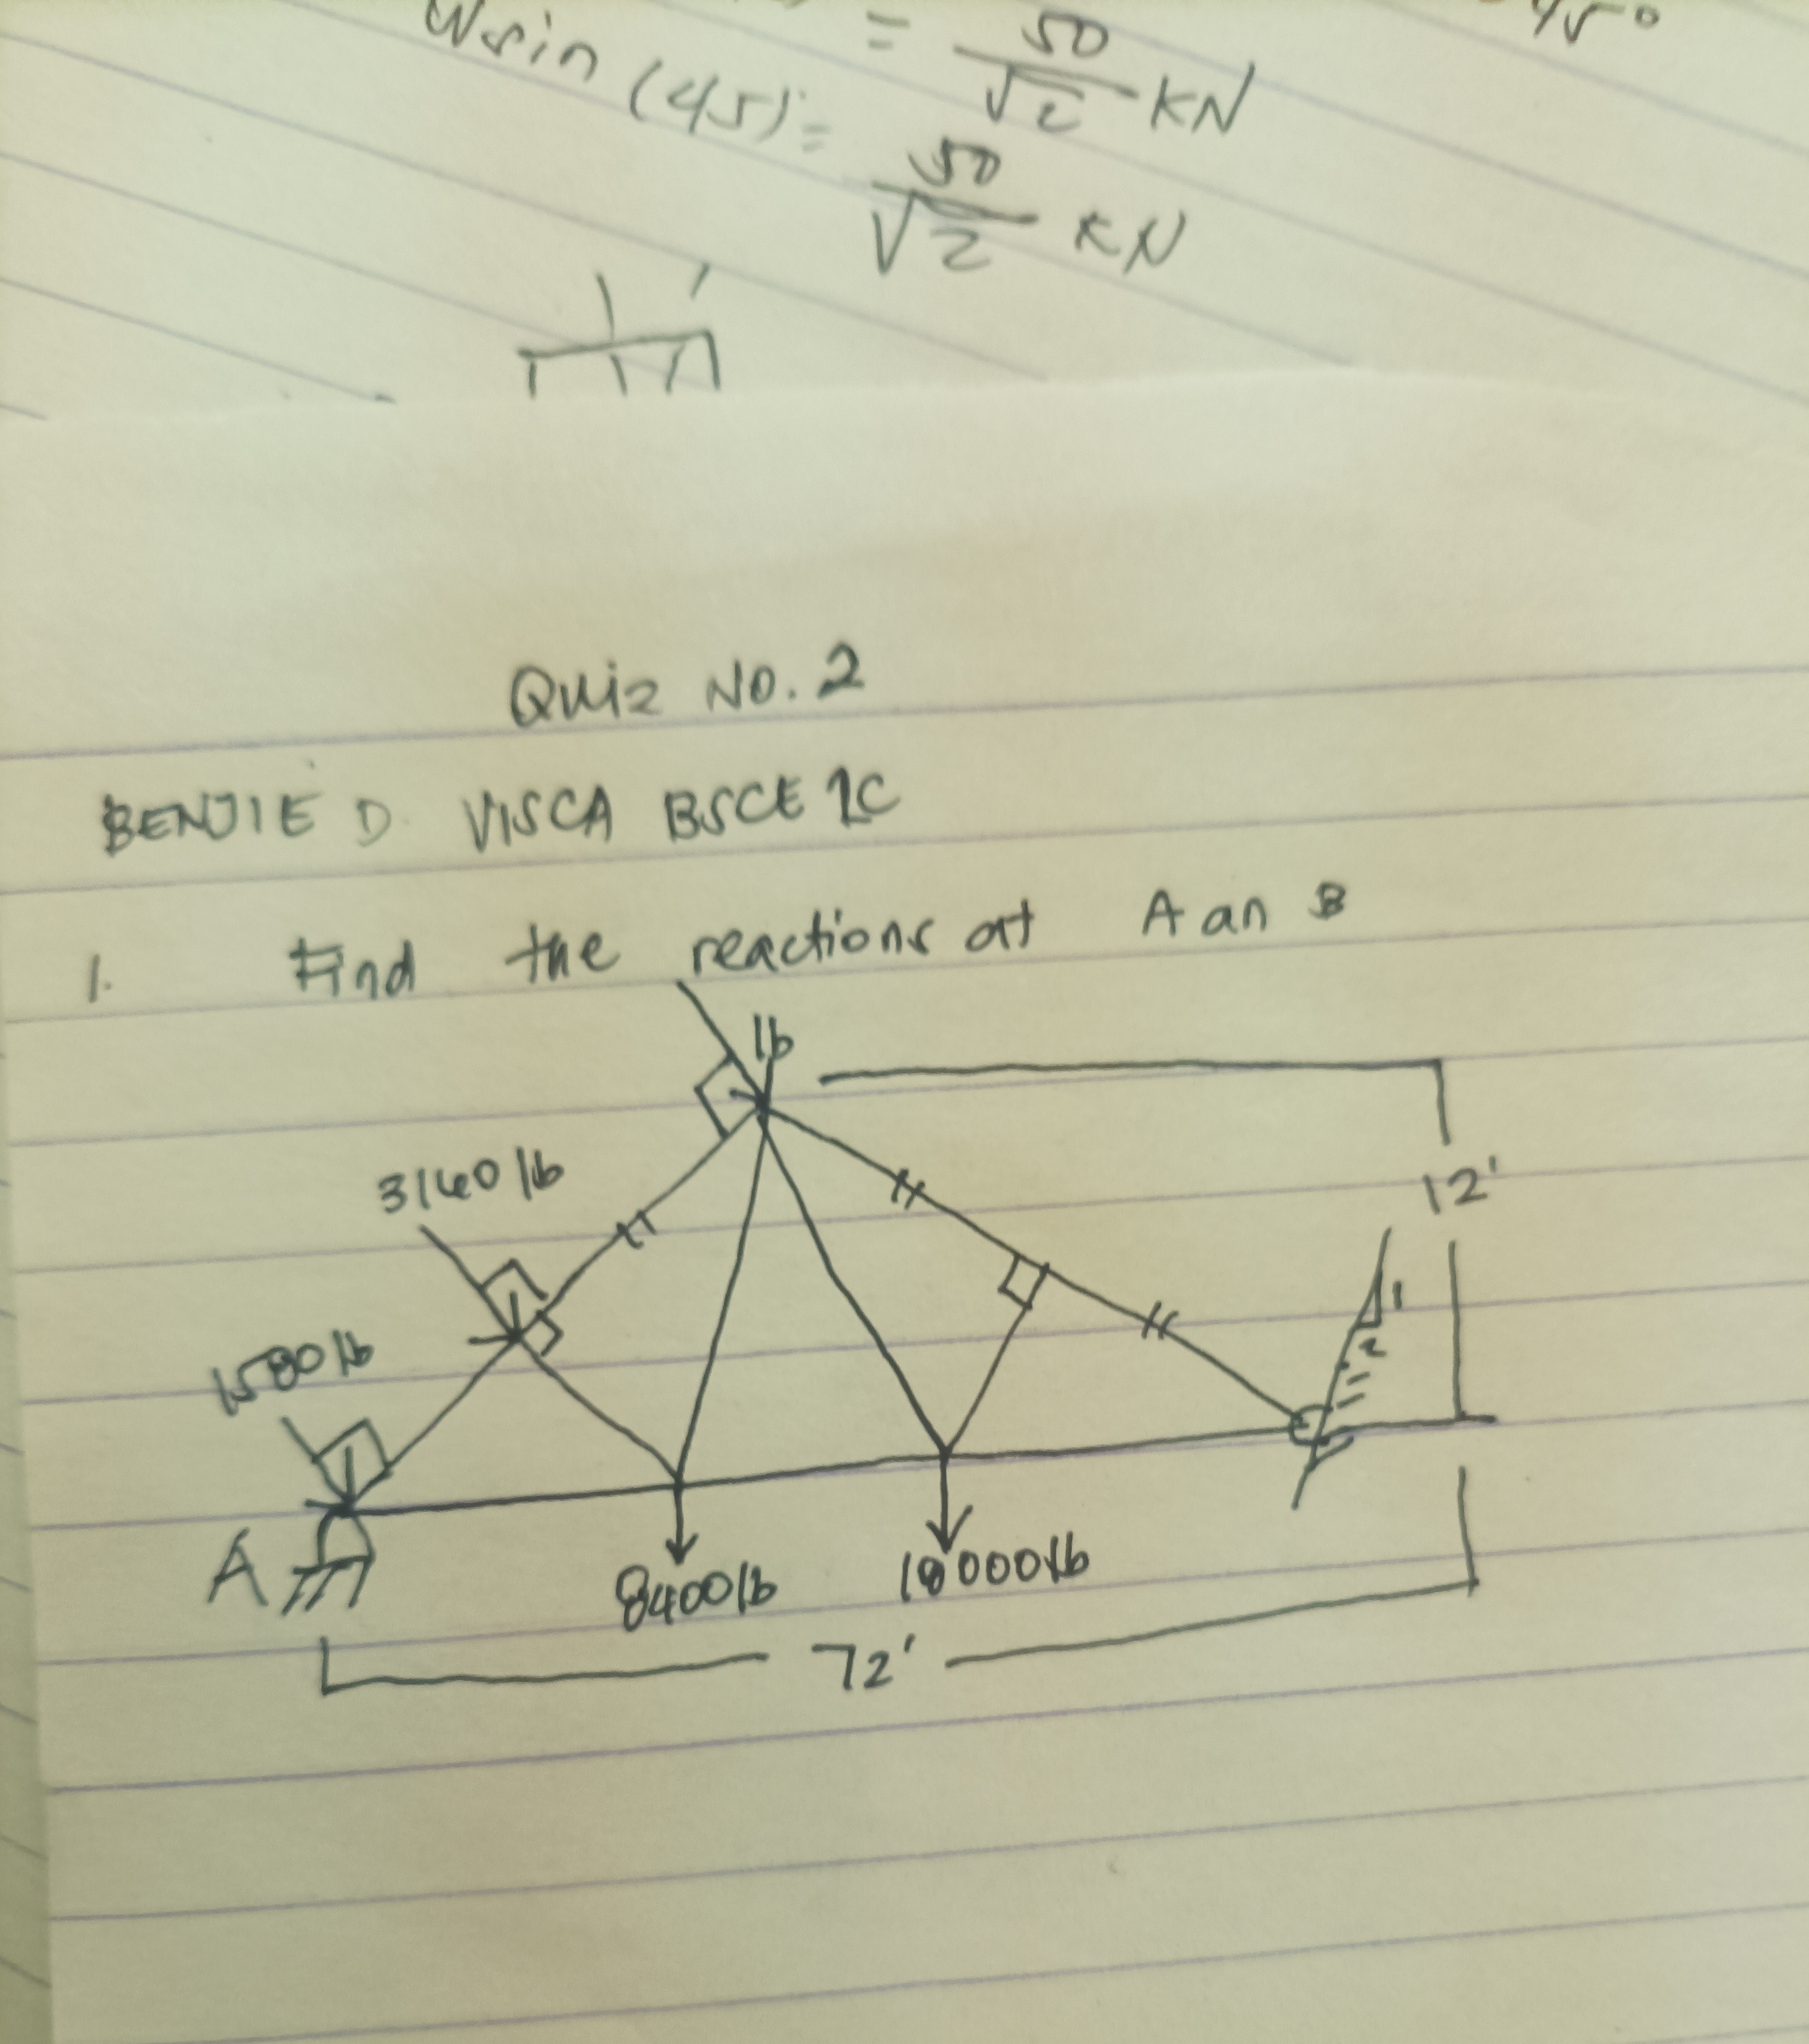 = 50
45°
√2 KN
Wsin (45) =
50
√2 KN
Quiz No. 2
BENJIE D. VISCA BSCE 2C
1. Find the reactions at A an B
lb
3140 lb
12'
1580 lb
1
2
A
8400 lb
18000 lb
72'